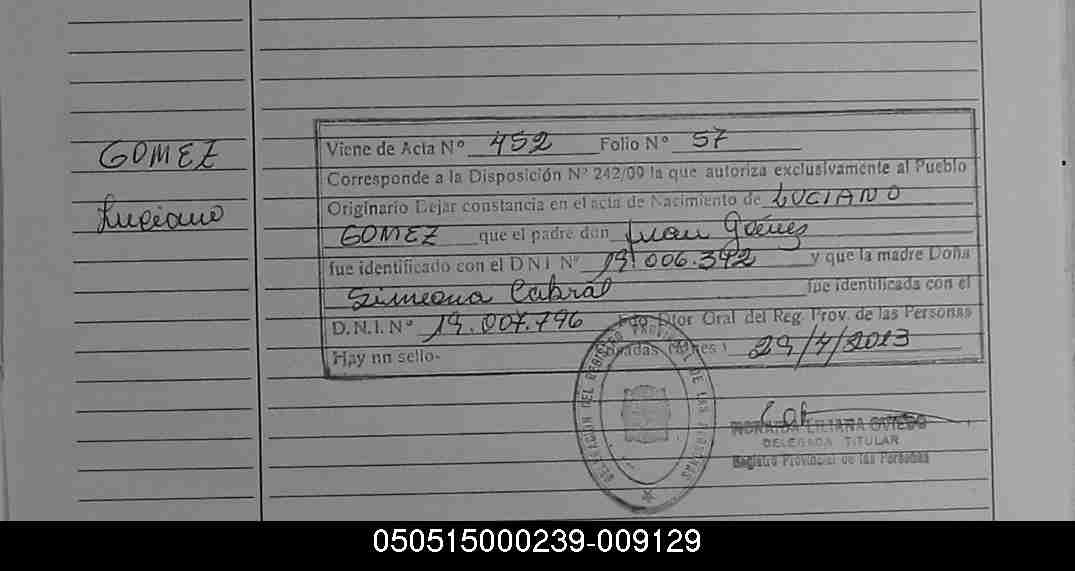 GOMEZ
Luciano
Viene de Acta Nº 452 Folio Nº 57
Corresponde a la Disposición Nº 242/09 la que autoriza exclusivamente al Pueblo
Originario Dejar constancia en el acta de Nacimiento de LUCIANO
GOMEZ que el padre don Juan Gómez
fue identificado con el D N I Nº 19.006.392 y que la madre Doña
Simeona Cabral fue identificada con el
D.N.I. Nº 19.007.796 Fdo Dtor Gral del Reg. Prov. de las Personas
Hay un sello- Posadas (Mnes) 29/4/2013
DELEGACION DEL REGISTRO PROVINCIAL DE LAS PERSONAS
LILIANA OVIEDO
DELEGADA TITULAR
Registro Provincial de las Personas
050515000239-009129